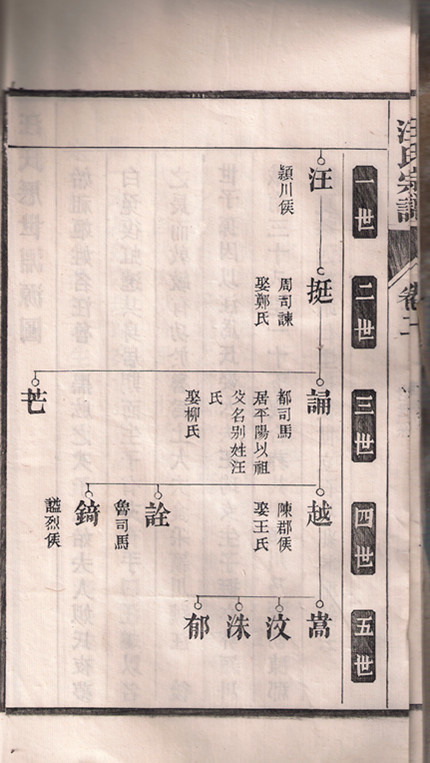 汪氏宗譜
卷二
一世
汪
潁川侯
二世
挺
周司諫
娶鄭氏
三世
誦
都司馬
居平陽以祖
父名别姓汪
氏
娶柳氏
芒
四世
越
陳郡侯
娶王氏
詮
魯司馬
錡
謚烈侯
五世
嵩
汶
洙
郁